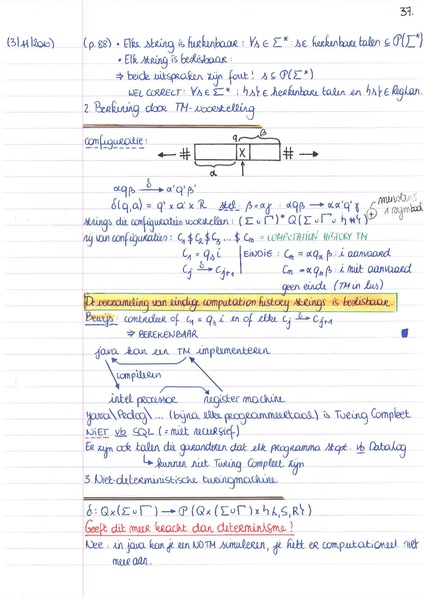 37.
(3/11/2010) (p. 88) • Elke string is herkenbaar : ∀s ∈ Σ* : s ∈ herkenbare talen ⊆ P(Σ*)
• Elk string is beslisbaar :
⇒ beide uitspraken zijn fout! s ⊆ P(Σ*)
WEL CORRECT: ∀s ∈ Σ* : {s} ∈ herkenbare talen en {s} ∈ RegLan.
2. Berekening door TM-voorstelling
configuratie:
q β
← # X # →
α
αqβ →δ α'q'β'
δ(q,a) = q' × a' × R stel β = aγ : αqβ → αa'q'γ
strings die configuraties voorstellen : (Σ ∪ Γ)* Q (Σ ∪ Γ ∪ {#})⁺ minstens 1 symbool
rij van configuraties : C₁ $ C₂ $ C₃ ... $ Cₘ = COMPUTATION HISTORY TM
C₁ = qₛ i EINDIG : Cₘ = α qₐ β : i aanvaard
Cⱼ →δ Cⱼ₊₁ Cₘ = α qᵣ β : i niet aanvaard
geen einde (TM in lus)
De verzameling van eindige computation history strings is beslisbaar.
Bewijs : controleer of C₁ = qₛ i en of elke Cⱼ →δ Cⱼ₊₁
⇒ BEREKENBAAR
java kan een TM implementeren
compileren
intel processor → register machine
Java \ Prolog \ ... (bijna elke programmeertaal) is Turing Compleet
NIET vb SQL (= niet recursief)
Er zijn ook talen die garanderen dat elk programma stopt. vb DataLog
↳ kunnen niet Turing Compleet zijn
3. Niet-deterministische turingmachine
δ : Q × (Σ ∪ Γ) → P(Q × (Σ ∪ Γ) × {L, S, R})
Geeft dit meer kracht dan determinisme?
Nee : in java kan je een NDTM simuleren, je hebt er computationeel niet
meer aan.